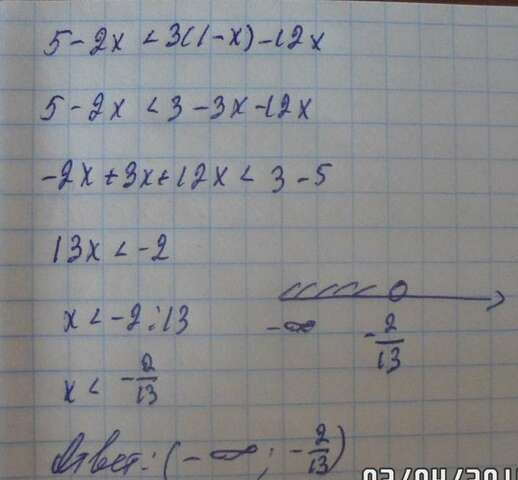 5 - 2x < 3(1 - x) - 12x
5 - 2x < 3 - 3x - 12x
-2x + 3x + 12x < 3 - 5
13x < -2
x < -2 : 13
-∞ -2/13
x < -2/13
Ответ: (-∞; -2/13)